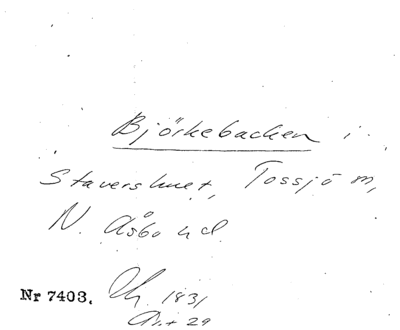 Björkebacken i
Stavershuet, Tossjö m,
N. Åsbo hd
Nr 7403. 1831
Art 29